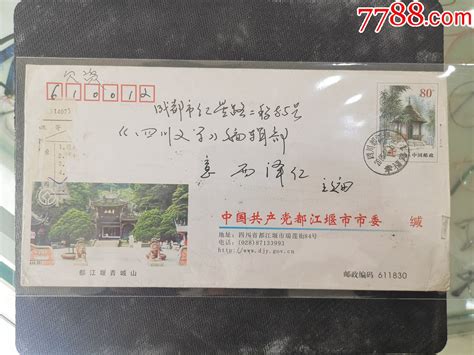 7788.com
欠资
610012
80
成都市红星路二段85号
《四川文学》编辑部
意西泽仁 主编
中国邮政
中国共产党都江堰市市委 缄
地址:四川省都江堰市瑞莲街84号
电话:(028)87133993
http://www.djy.gov.cn
都江堰青城山
邮政编码 611830